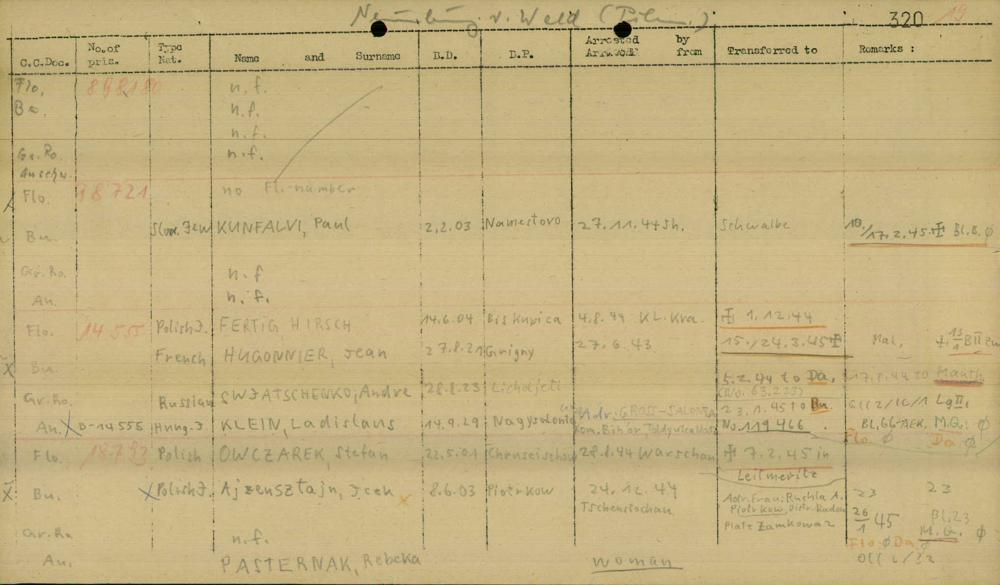 Neunburg v. Wald (
320 19
C.C.Doc. No. of pris. Type Nat. Name and Surname B.D. D.P. Arrested by from Transferred to Remarks :
Flo. n.f.
Bu. n.f.
n.f.
Gr.Ro. n.f.
Auschw.
Flo. 18721 no Fl.-number
Bu. Slov. Jew KUNFALVI, Paul 2.2.03 Namestovo 27.11.44 Sh. Schwalbe 10./17.2.45 Bl.8. Ø
Gr.Ro. n.f
Au. n.f.
Flo. 14555 Polish J. FERTIG HIRSCH 14.6.04 Biskupica 4.8.44 KL.Kra. 1.12.44
Bu. French HUGONNIER, Jean 27.8.21 Gringny 27.6.43 15./24.3.45 Mal,
Gr.Ro. Russian SWJATSCHENKO, Andre 28.8.23 5.2.44 to Da. 17.8.44 to Mauth
Au. X B-14555 Hung. J. KLEIN, Ladislaus 14.9.29 Nagyszalonta Adr: GROSS-SALONTA 23.1.45 to Bu. No 119466
Kom. Bihar M.G.: Ø
Flo. Ø Da. Ø
Flo. 18793 Polish OWCZAREK, Stefan 22.5.01 28.8.44 Warschau 7.2.45 in Leitmeritz
X Bu. X Polish J. Ajzensztajn, Icek x 8.6.03 Piotrkow 24.12.44 Tschenstochau Adr. Frau: Ruchla A. 23 23
Piotrkow, Distr. Radom 26/1 45 Bl.23
Platz Zamkowa 2 M.G. Ø
Gr.Ro. n.f. Flo. Ø Da. Ø
Au. PASTERNAK, Rebeka woman